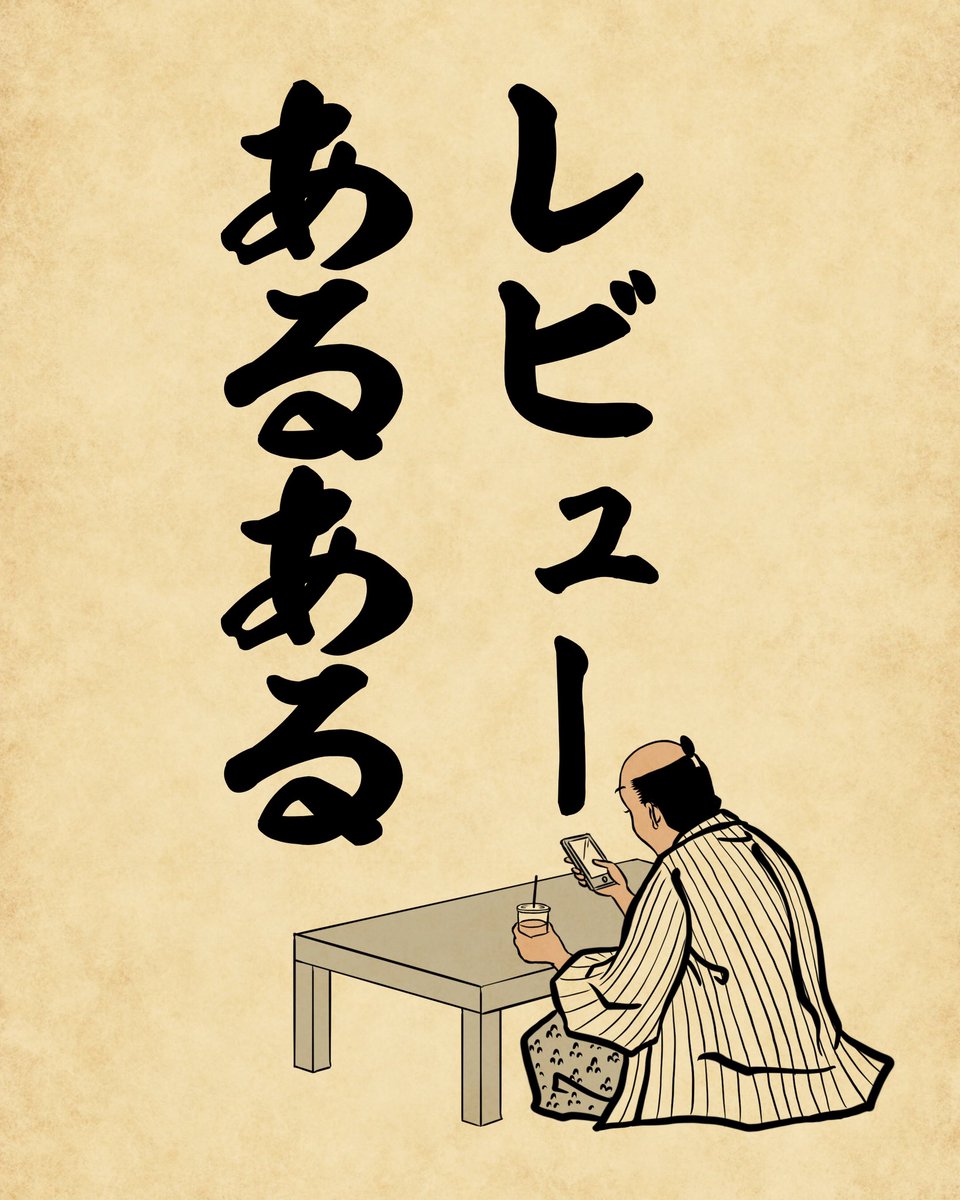 レビュー
あるあある